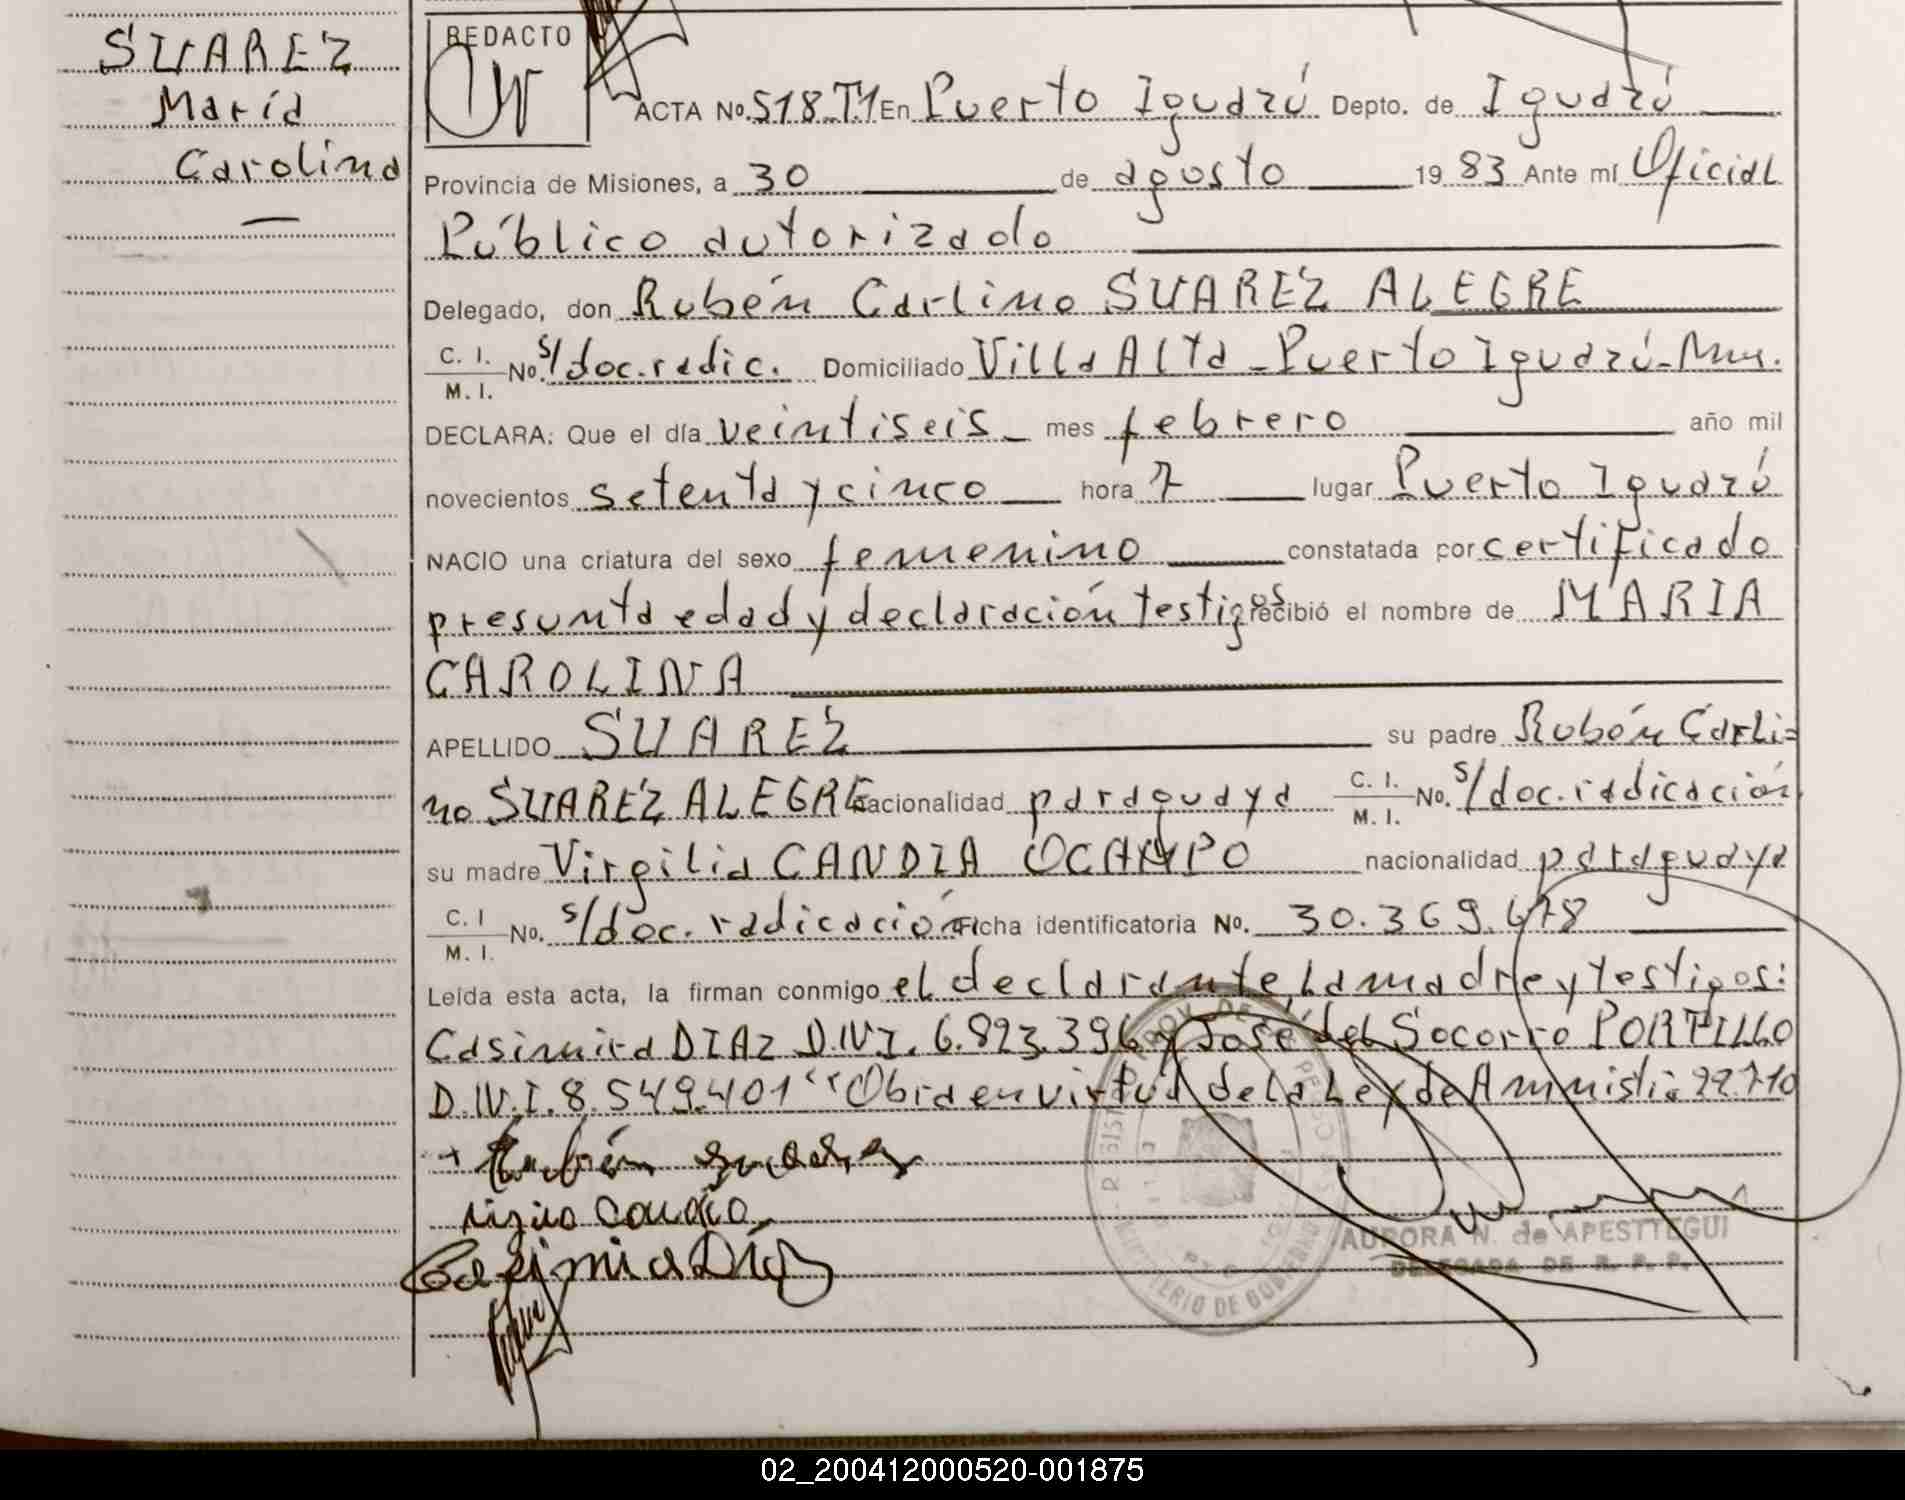 SUAREZ
María
Carolina
REDACTO
ACTA No. 518 T1 En Puerto Iguazú Depto. de Iguazú
Provincia de Misiones, a 30 de agosto 19 83 Ante mí Oficial
Público autorizado
Delegado, don Rubén Carlino SUAREZ ALEGRE
C. I. M. I. No. s/doc. radic. Domiciliado Villa Alta - Puerto Iguazú - Mnes.
DECLARA: Que el día veintiseis mes febrero año mil
novecientos setenta y cinco hora 7 lugar Puerto Iguazú
NACIO una criatura del sexo femenino constatada por certificado
presunta edad y declaración testigos recibió el nombre de MARIA
CAROLINA
APELLIDO SUAREZ su padre Rubén Carli=
no SUAREZ ALEGRE nacionalidad paraguaya C. I. M. I. No. s/doc. radicación
su madre Virgilia CANDIA OCAMPO nacionalidad paraguaya
C. I M. I. No. s/doc. radicación Ficha identificatoria No. 30.369.678
Leída esta acta, la firman conmigo el declarante, la madre y testigos:
Casimira DIAZ D.N.I. 6.823.396 y José del Socorro PORTILLO
D.N.I. 8.549.401 "Obra en virtud de la Ley de Amnistia 22.710
+ Rubén Suarez
Casimira Díaz
MINISTERIO DE GOBIERNO
AURORA N. de APESTTEGUI
DELEGADA DE R. P. P.
02_200412000520-001875